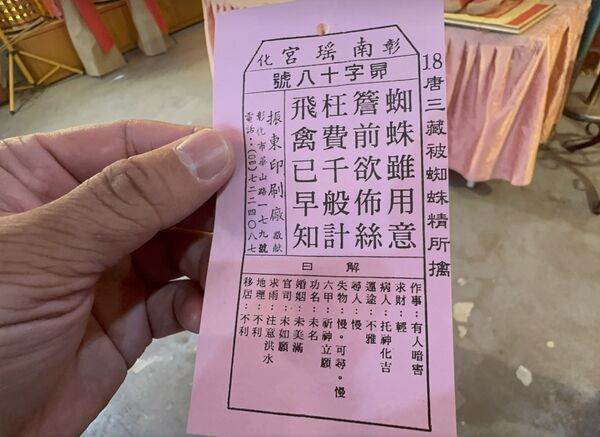 彰南瑤宮化
昴字十八號
18唐三藏被蜘蛛精所擒
蜘蛛雖用意
簷前欲佈絲
枉費千般計
飛禽已早知
振東印刷廠 敬獻
彰化市華山路一七九號
電話：(04)七二二四〇八七
解曰
作事：有人暗害
求財：輕
病人：托神化吉
運途：不雅
尋人：慢
失物：慢。可尋。慢
六甲：祈神立願
功名：未名
婚姻：未美滿
官司：未如願
求雨：注意洪水
地理：不利
移居：不利